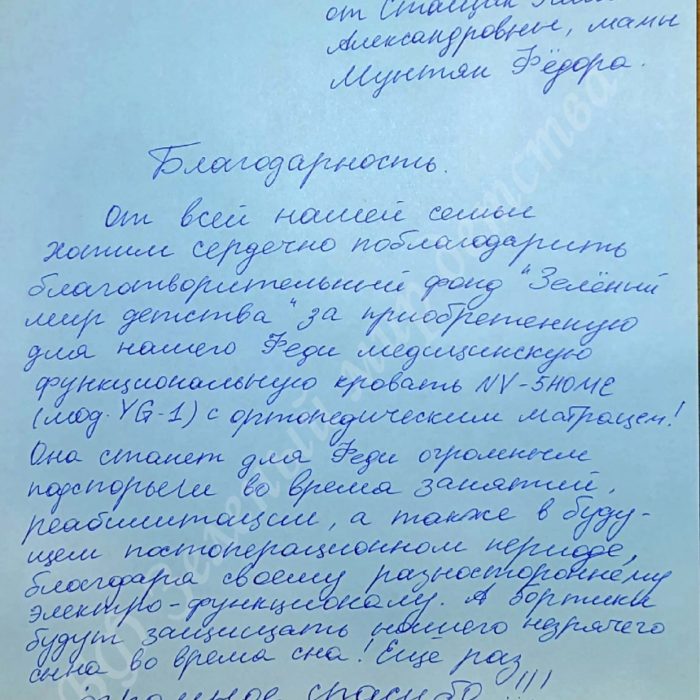 от Стащик
Александровны, мамы
Мунтян Фёдора.
Благодарность.
От всей нашей семьи
хотим сердечно поблагодарить
благотворительный фонд "Зелёный
мир детства" за приобретенную
для нашего Феди медицинскую
функциональную кровать NV-5HOME
(мод. YG-1) с ортопедическим матрацем!
Она станет для Феди огромным
подспорьем во время занятий,
реабилитации, а также в буду-
щем постоперационном периоде,
благодаря своему разностороннему
электро-функционалу. А бортики
будут защищать нашего незрячего
сына во время сна! Еще раз
огромное спасибо!!!
БФ Зеленый мир детства